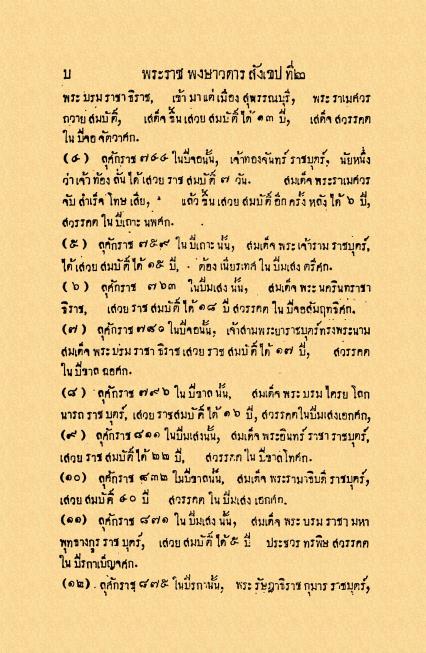 บ พระราช พงษาวดาร สังเขป ที่๒
พระ บรม ราชา ธิราช, เข้า มา แต่ เมือง สุพรรณบุรี, พระ ราเมศวร
ถวาย สมบัติ์, เสด็จ ขึ้น เสวย สมบัติ์ ได้ ๑๓ ปี, เสด็จ สวรรคต
ใน ปีจอ จัตวาศก.
(๔) ลุศักราช ๗๔๔ ในปีจอนั้น, เจ้าทองจันทร์ ราชบุตร์, นัยหนึ่ง
ว่า เจ้า ท้อง ลั่น ได้ เสวย ราช สมบัติ์ ๗ วัน. สมเด็จ พระราเมศวร
จับ สำเร็จ โทษ เสีย, แล้ว ขึ้น เสวย สมบัติ์ อีก ครั้ง หลัง ได้ ๖ ปี,
สวรรคต ใน ปีเถาะ นพศก.
(๕) ลุศักราช ๗๔๙ ใน ปีเถาะ นั้น, สมเด็จ พระ เจ้าราม ราชบุตร์,
ได้ เสวย สมบัติ์ ได้ ๑๕ ปี, ต้อง เนียรเทศ ใน ปีมเสง ตรีศก.
(๖) ลุศักราช ๗๖๓ ในปีมเสง นั้น, สมเด็จ พระ นครินทราชา
ธิราช, เสวย ราช สมบัติ์ ได้ ๑๘ ปี สวรรคต ใน ปีจอสัมฤทธิศก.
(๗) ลุศักราช ๗๘๐ ในปีจอนั้น, เจ้าสามพระยาราชบุตร์ทรงพระนาม
สมเด็จ พระ บรม ราชา ธิราช เสวย ราช สมบัติ์ ได้ ๑๗ ปี, สวรรคต
ใน ปีขาล ฉอศก.
(๘) ลุศักราช ๗๙๖ ใน ปีขาล นั้น, สมเด็จ พระ บรม ไตรย โลก
นารถ ราช บุตร์, เสวย ราชสมบัติ์ ได้ ๑๖ ปี, สวรรคตในปีมเสงเอกศก,
(๙) ลุศักราช ๘๑๑ ในปีมเสงนั้น, สมเด็จ พระอินทร์ ราชา ราชบุตร์,
เสวย ราช สมบัติ์ ได้ ๒๒ ปี, สวรรคต ใน ปีขาลโทศก.
(๑๐) ลุศักราช ๘๓๒ ในปีขาลนั้น. สมเด็จ พระรามาธิบดี ราชบุตร์,
เสวย สมบัติ์ ๔๐ ปี สวรรคต ใน ปีมเสง เอกศก.
(๑๑) ลุศักราช ๘๗๑ ใน ปีมเสง นั้น, สมเด็จ พระ บรม ราชา มหา
พุทธางกูร ราช บุตร์, เสวย สมบัติ์ ได้ ๕ ปี ประชวร ทรพิษ สวรรคต
ใน ปีรกาเบ็ญจศก.
(๑๒) ลุศักราช ๘๗๕ ในปีรกานั้น, พระ รัษฎาธิราช กุมาร ราชบุตร์,